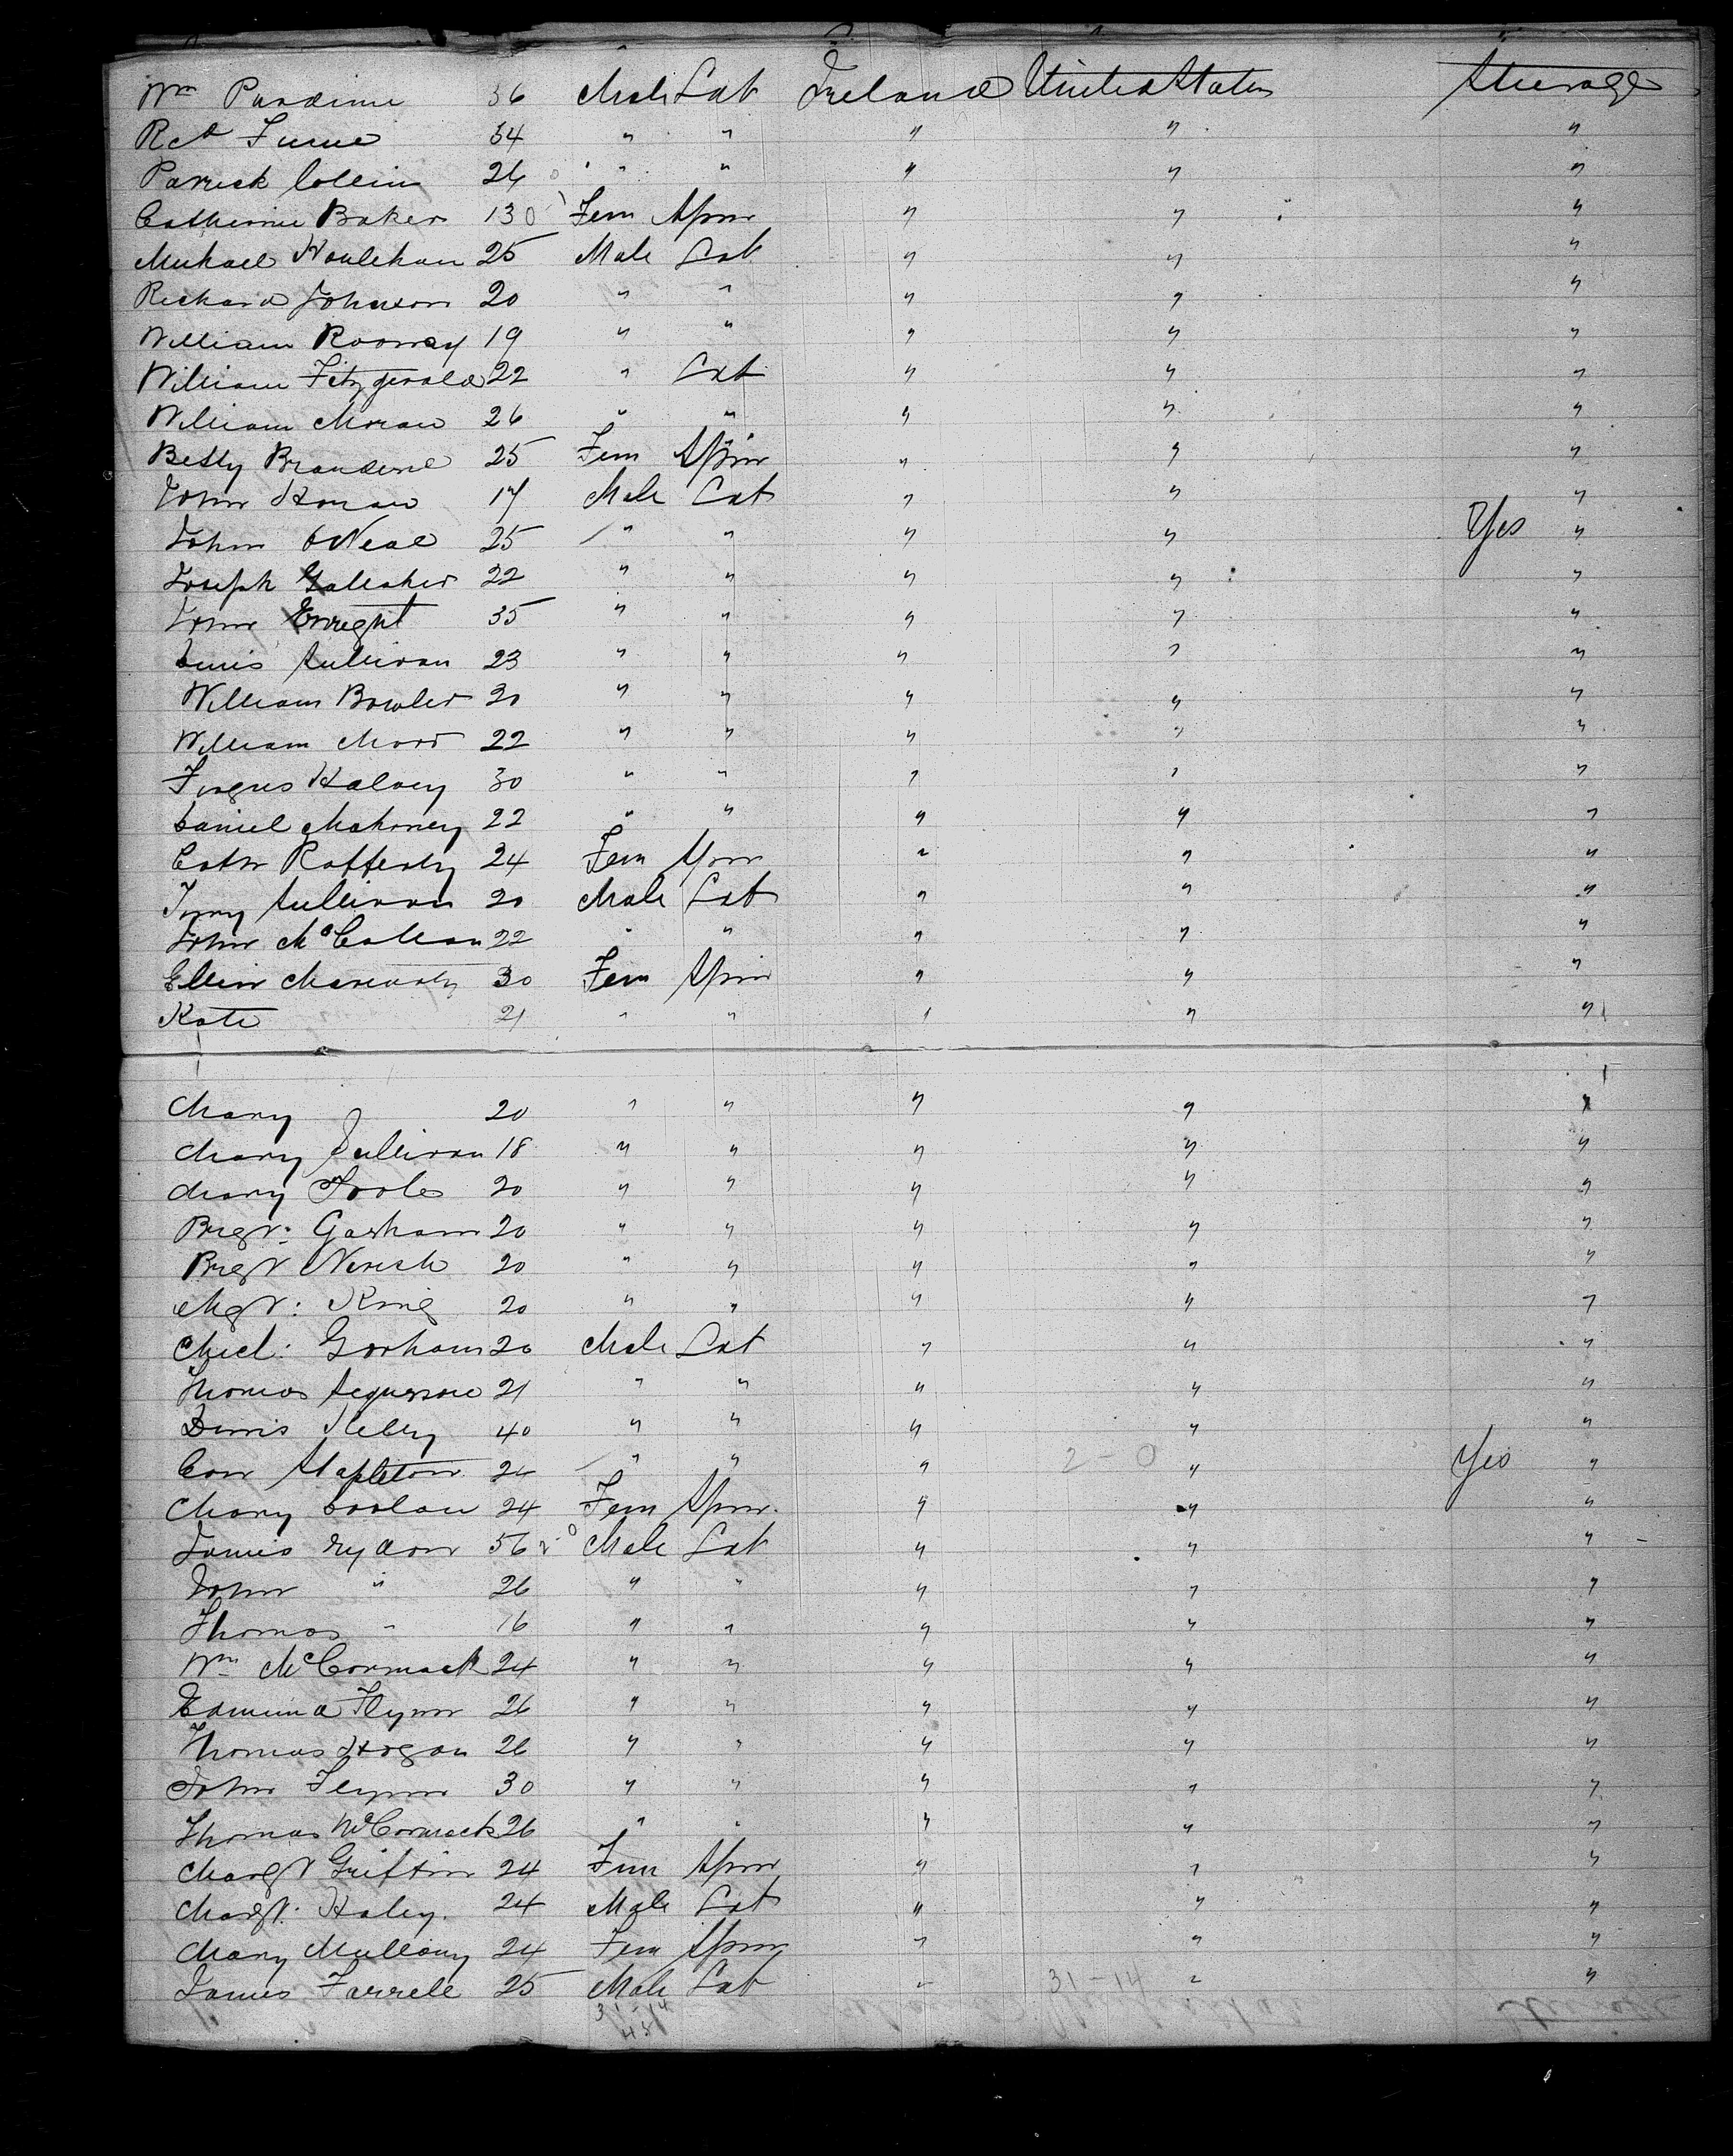 Wm 36 Male Lab Ireland United States Steerage
34 " " " " "
Patrick Collins 24 " " " " "
Catherine Baker 30 Fem Spin " " "
Michael Houlehan 25 Male Lab " " "
Richard Johnson 20 " " " " "
William 19 " " " " "
William Fitzgerald 22 " Lab " " "
William Moran 26 " " " " "
Betty 25 Fem Spin " " "
John Horan 17 Male Lab " " "
John O'Neal 25 " " " " Yes "
Joseph Gallaher 22 " " " " "
John Enright 35 " " " " "
Denis Sullivan 23 " " " " "
William Bowler 30 " " " " "
William 22 " " " " "
Halvey 30 " " " " "
Daniel Mahoney 22 " " " " "
Cathr Rafferty 24 Fem Spin " " "
Sullivan 20 Male Lab " " "
John McCallan 22 " " " " "
Ellen 30 Fem Spin " " "
Kate 21 " " " " "
Mary 20 " " " " "
Mary Sullivan 18 " " " " "
Mary Toole 20 " " " " "
Brigt: 20 " " " " "
Brigt 20 " " " " "
Mgt: King 20 " " " " "
Micl: Gorham 20 Male Lab " " "
Thomas 21 " " " " "
Dinnis 40 " " " " "
Con Stapleton 24 " " " 2-0 " Yes "
Mary Doolan 24 Fem Spin " " "
James Rydon 56 Male Lab " " "
John " 26 " " " " "
Thomas " 16 " " " " "
Wm McCormack 24 " " " " "
Edmund Flynn 26 " " " " "
Thomas Hogan 26 " " " " "
John Flynn 30 " " " " "
Thomas McCormack 26 " " " " "
Margt Griffin 24 Fem Spin " " "
Margt: Haley 24 Male Lab " " "
Mary Mullany 24 Fem Spin " " "
James Farrell 25 Male Lab " 31-14 " "